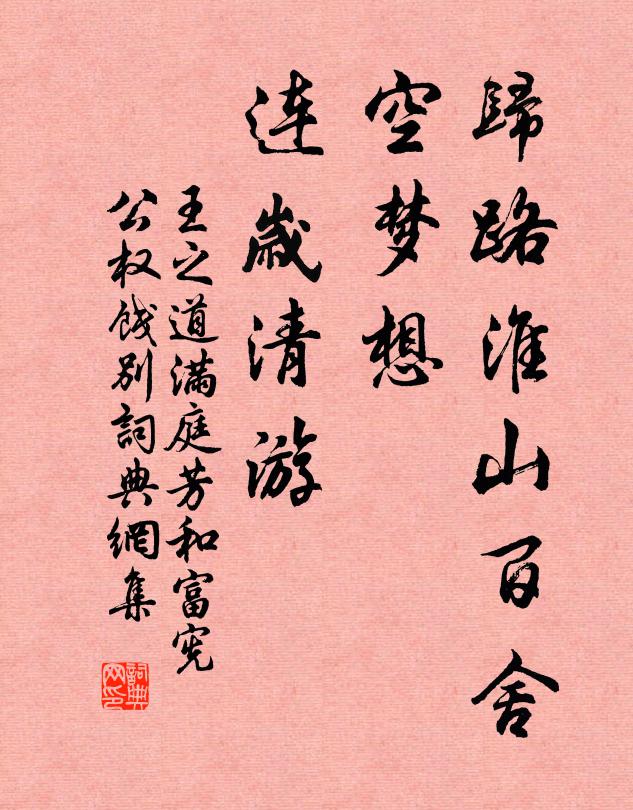 歸路淮山百舍
空梦想
连歲清游
王之道满庭芳和富宪
公权饯别詞典網集
詞典网印